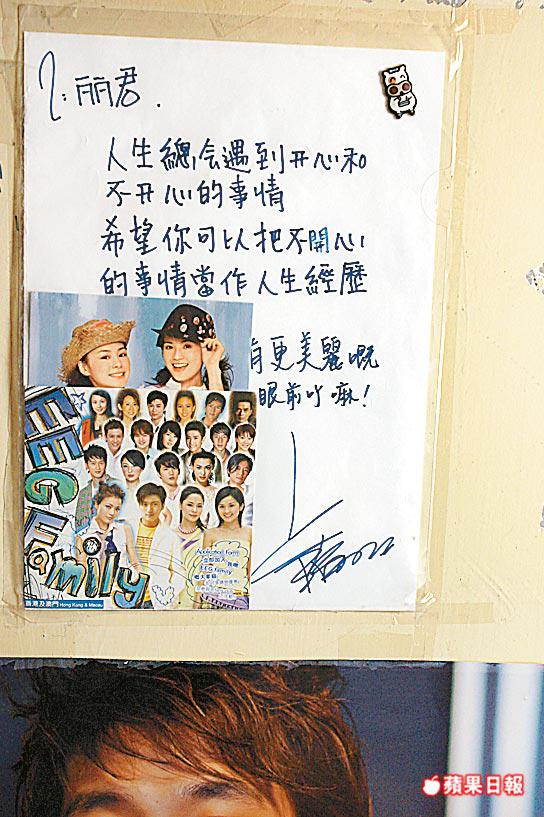 : 丽君.
人生總会遇到开心和
不开心的事情
希望你可以把不開心
的事情當作人生經歷
有更美麗嘅
眼前吖嘛!
EEG
Family
Application Form
立即加入
EEG Family
香港及澳門 Hong Kong & Macau
蘋果日報